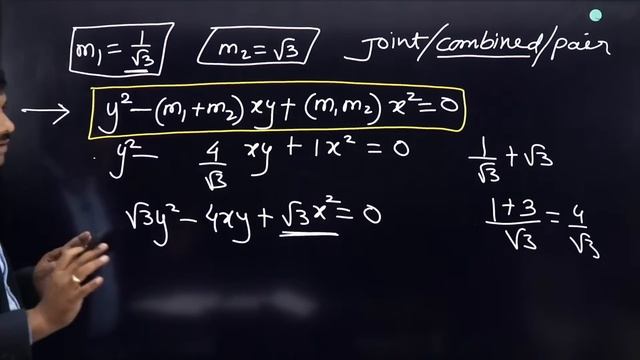 m₁ = 1/√3 m₂ = √3 Joint/combined/pair
→ y² – (m₁+m₂) xy + (m₁m₂) x² = 0
y² – 4/√3 xy + 1x² = 0 1/√3 + √3
√3y² – 4xy + √3x² = 0 (1+3)/√3 = 4/√3